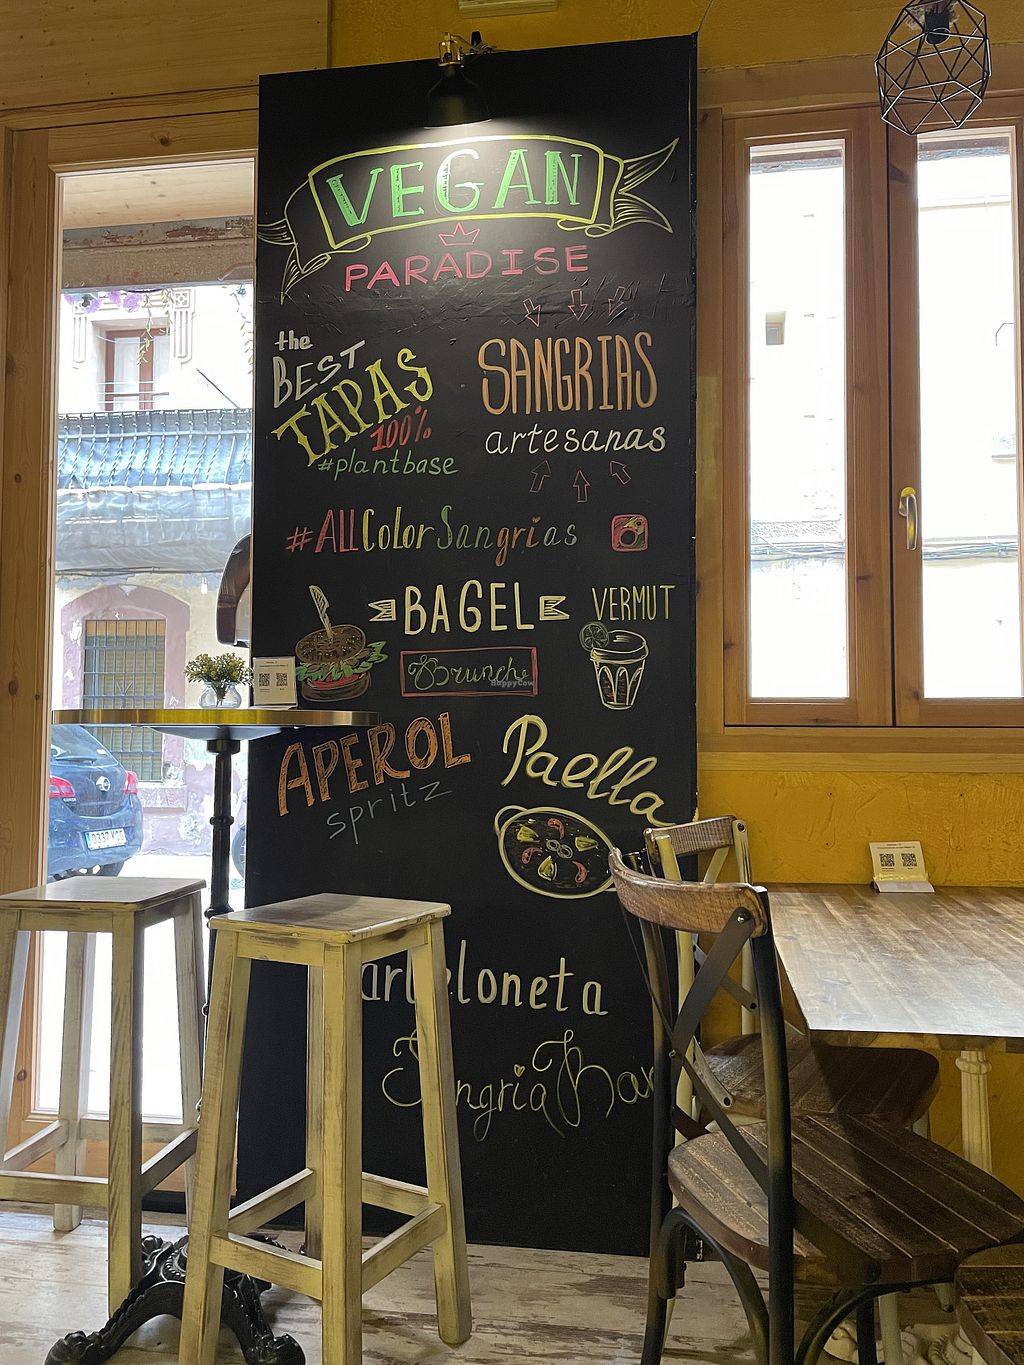 VEGAN
PARADISE
the
BEST
TAPAS
100%
#plantbase
SANGRIAS
artesanas
#ALLColorSangrias
BAGEL
VERMUT
Brunch
HappyCow
APEROL
spritz
Paella
Sangria Bar
0337